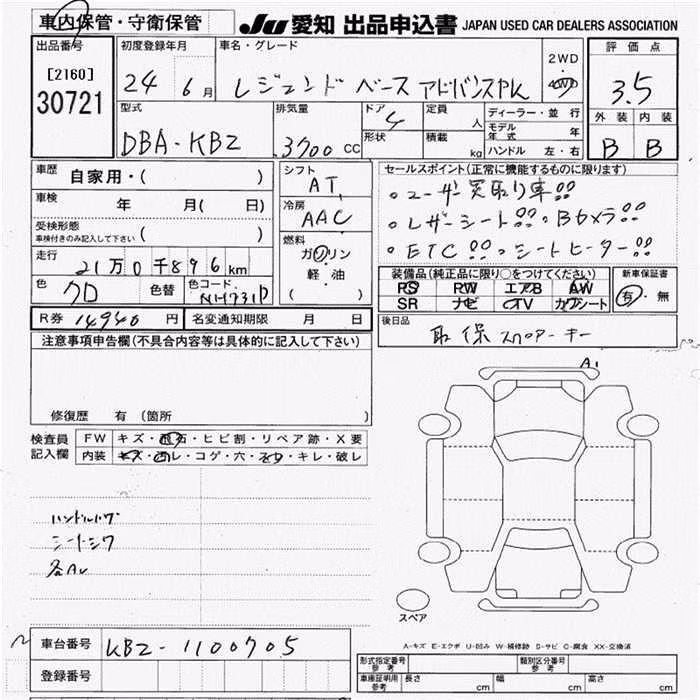 車内保管・守衛保管
JU 愛知 出品申込書 JAPAN USED CAR DEALERS ASSOCIATION
出品番号
[2160]
30721
初度登録年月
24 6月
車名・グレード
レジェンド ベース アドバンスPK
2WD
4WD
評価点
3.5
外装 内装
B B
型式
DBA-KB2
排気量
3700 CC
ドア
4
形状
定員
人
積載
kg
ディーラー・並行
モデル年式 年
ハンドル 左・右
車歴
自家用・( )
車検
年 月( 日)
受検形態
車検付きのみ記入して下さい ( )
走行
21万0千896km
色
クロ
色替
色コード
NH731P
シフト
AT
冷房
AAC
燃料
ガソリン
軽・油
( )
セールスポイント(正常に機能するものに限ります)
ユーザー買取り車!!
レザーシート!! Bカメラ!!
ETC!! シートヒーター!!
装備品(純正品に限り○をつけてください)
PS PW エアB AW
SR ナビ TV カワシート
新車保証書
有・無
R券 14940 円
名変通知期限 月 日
後日品
取保 スペアーキー
注意事項申告欄(不具合内容等は具体的に記入して下さい)
修復歴 有 (箇所 )
検査員記入欄
FW キズ・飛石・ヒビ割・リペア跡・X要
内装 キズ・ヨゴレ・コゲ・穴・スレ・キレ・破レ
A1
ハンドルハゲ
シートシワ
各AU
スペア
車台番号
KB2-1100705
登録番号
A-キズ E-エクボ U-凹み W-補修跡 S-サビ C-腐食 XX-交換済
形式指定番号 参考
類別区分番号 参考
車庫証明用 参考
長さ cm
幅 cm
高さ cm